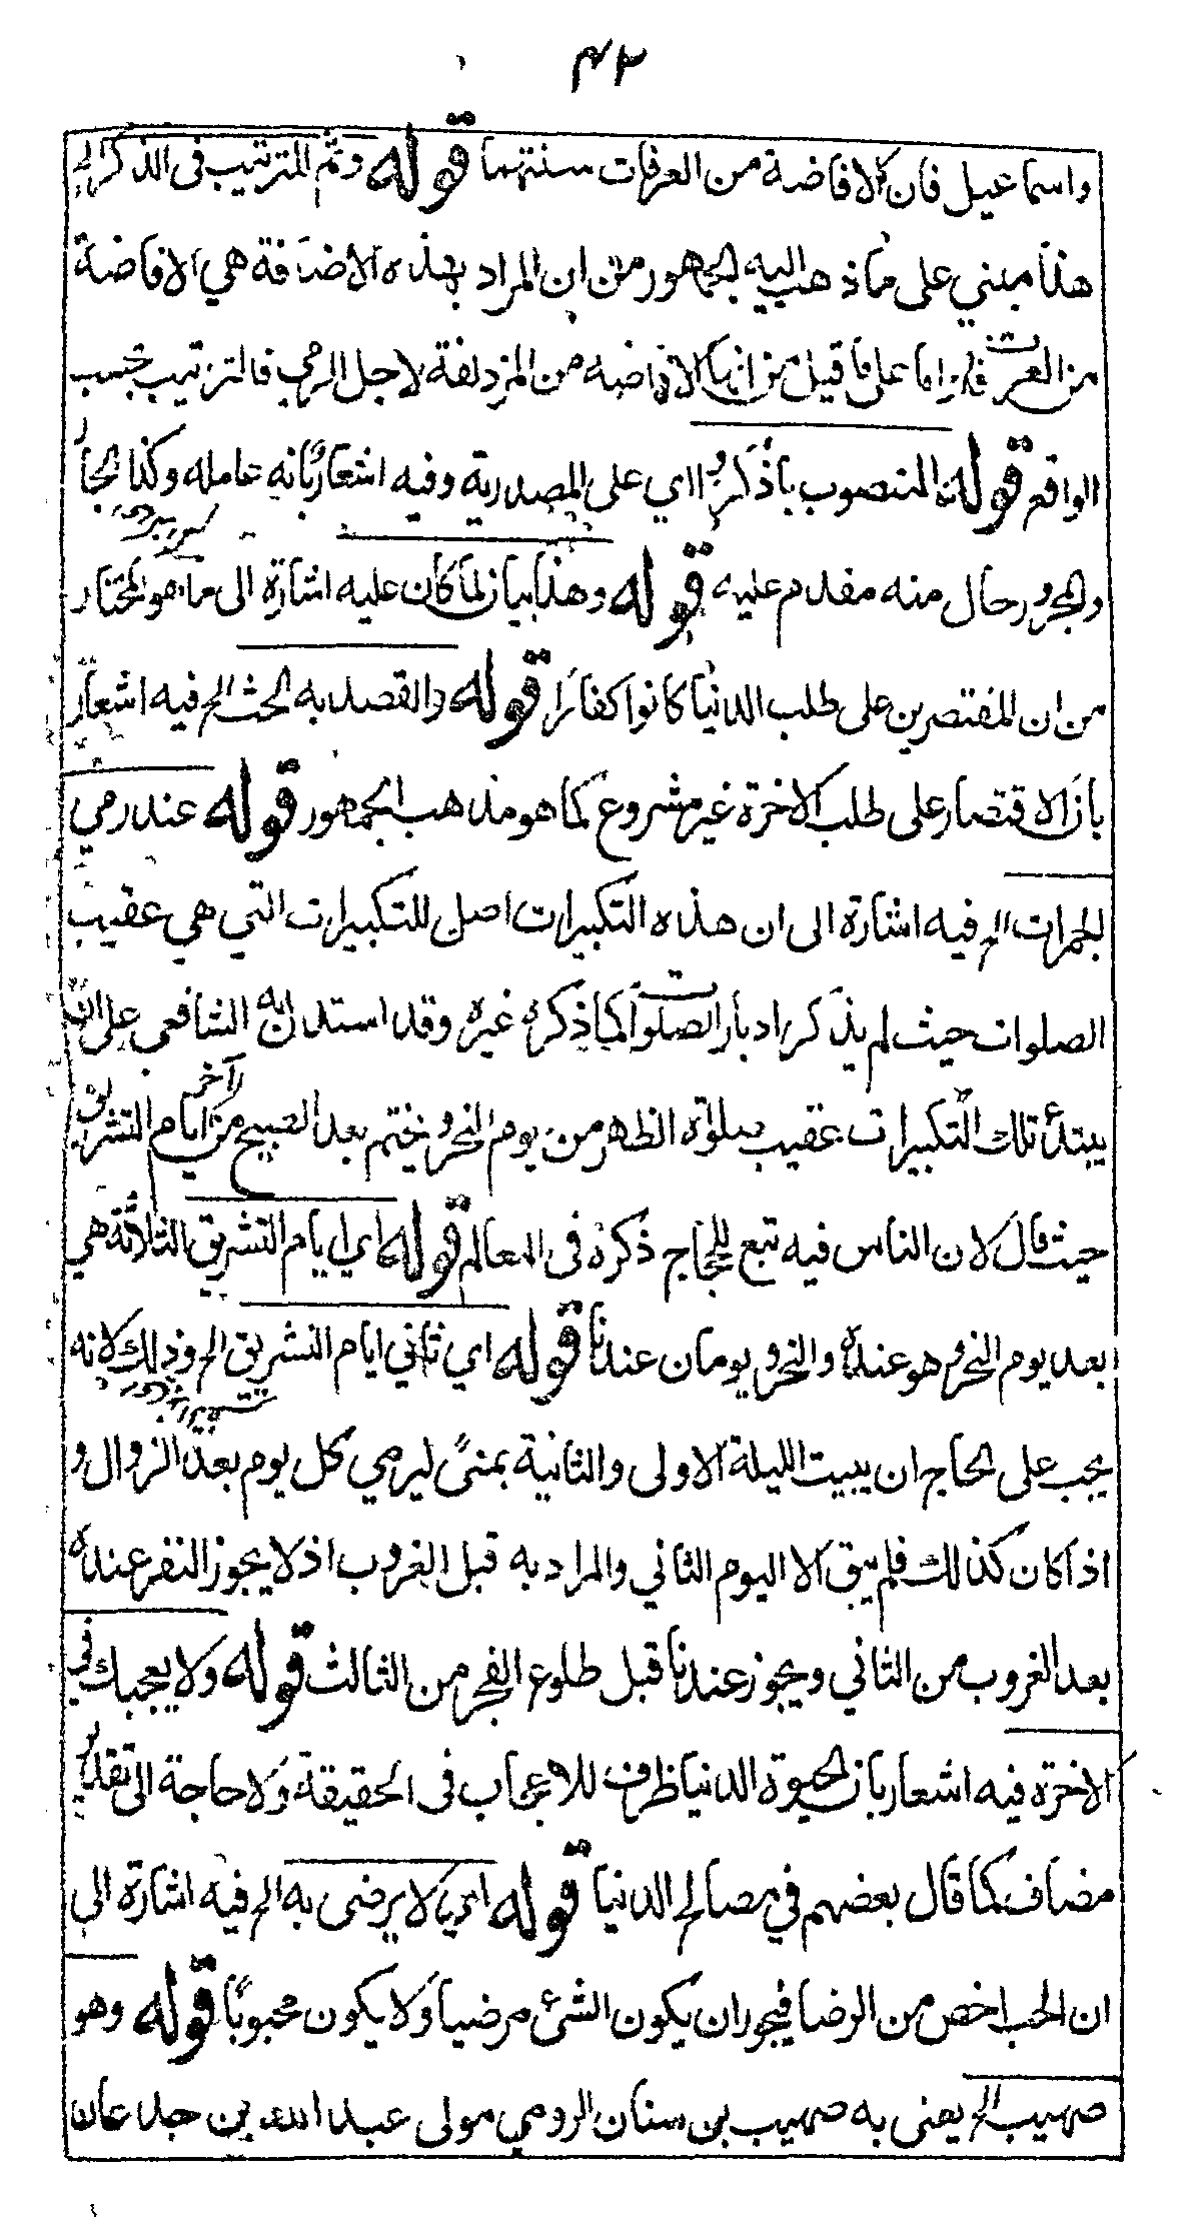 ٤٢
واسماعيل فان الافاضة من العرفات سنتهما قوله وثم للترتيب فى الذكر الخ
هذا مبني على ما ذهب اليه الجمهور من ان المراد بهذه الاضافة هي الافاضة
من العرفات واما على ما قيل من انها الافاضة من المزدلفة لاجل الرمي فالترتيب بحسب
الواقع قوله المنصوب باذكروا اي على المصدرية وفيه اشعار بانه عامله وكذا الجار
والمجرور حال منه مقدم عليه قوله وهذا بيان لما كان عليه اشارة الى ما هو المختار
من ان المقتصرين على طلب الدنيا كانوا كفارا قوله والقصد به الحث الخ فيه اشعار
بان الاقتصار على طلب الاخرة غير مشروع كما هو مذهب الجمهور قوله عند رمي
الجمرات الخ فيه اشارة الى ان هذه التكبيرات اصل للتكبيرات التي هي عقيب
الصلوات حيث لم يذكر ادبار الصلوات كما ذكره غيره وقد استدل به الشافعي على انه
يبتدئ تلك التكبيرات عقيب صلوة الظهر من يوم النحر ويختم بعد الصبح من آخر ايام التشريق
حيث قال لان الناس فيه تبع للحجاج ذكره فى المعالم قوله اي ايام التشريق الثلاثة هي
بعد يوم النحر هو عنده والنحر يومان عندنا قوله اي ثاني ايام التشريق الخ وذلك لانه
يجب على الحاج ان يبيت الليلة الاولى والثانية بمنى ليرمي كل يوم بعد الزوال و
اذا كان كذلك فلم يبق الا اليوم الثاني والمراد به قبل الغروب اذ لا يجوز النفر عنده
بعد الغروب من الثاني ويجوز عندنا قبل طلوع الفجر من الثالث قوله ولا يعجبك في
الاخرة فيه اشعار بان الحيوة الدنيا ظرف للاعجاب فى الحقيقة ولا حاجة الى تقدير
مضاف كما قال بعضهم في مصالح الدنيا قوله اي لا يرضى به الخ فيه اشارة الى
ان الحب اخص من الرضا فيجوز ان يكون الشئ مرضيا ولا يكون محبوبا قوله وهو
صهيب الخ يعنى به صهيب بن سنان الرومي مولى عبد الله بن جدعان